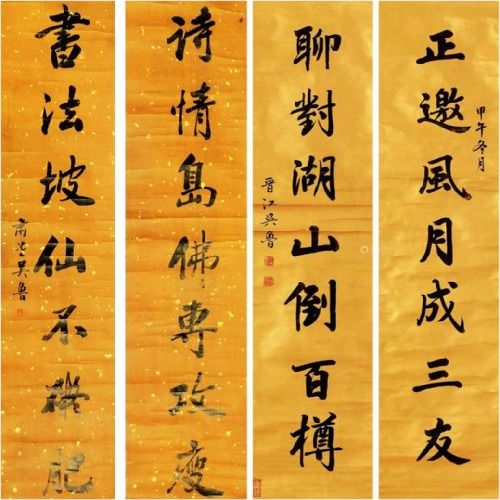 正邀風月成三友
甲午冬月
聊對湖山倒百樽
晉江吳魯
詩情島佛專攻瘦
書法坡仙不肥
肅堂吳魯